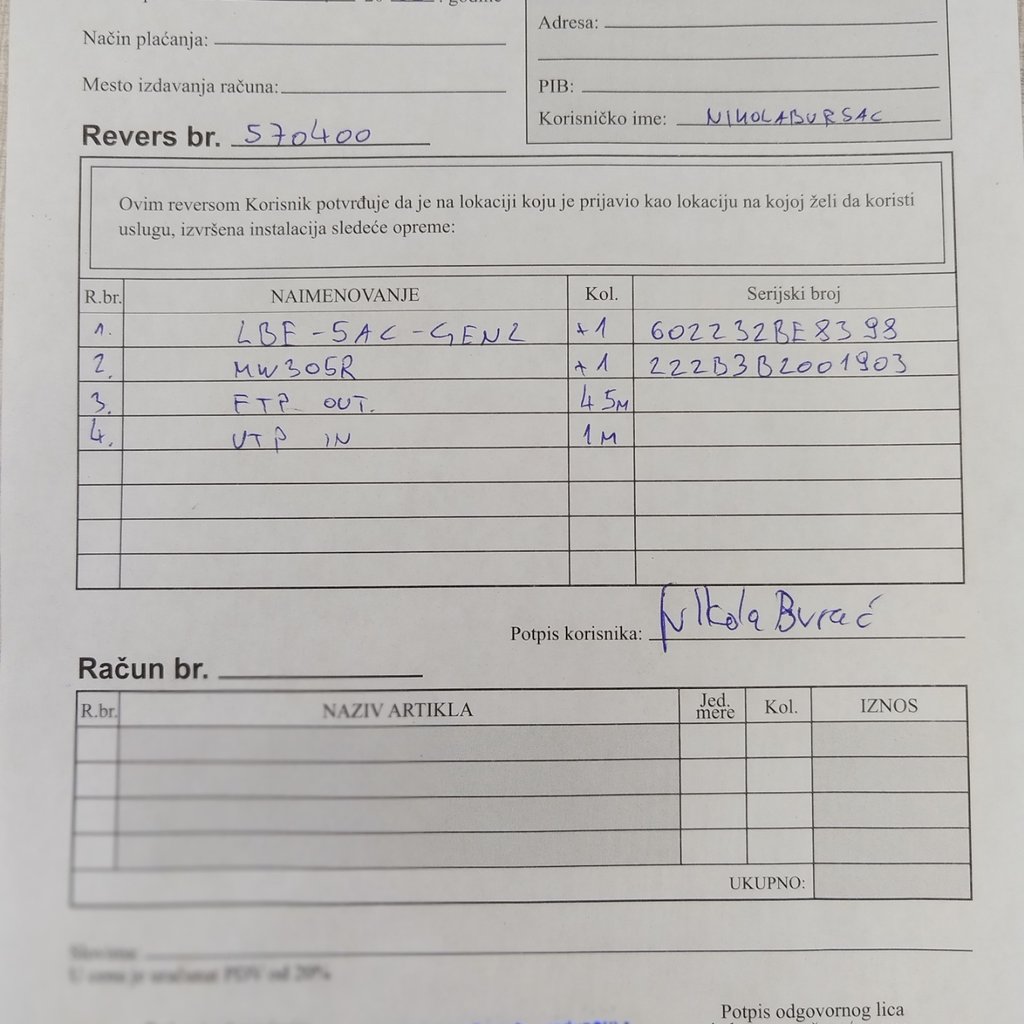 Adresa:
Način plaćanja:
Mesto izdavanja računa:
PIB:
Korisničko ime: NIKOLABURSAC
Revers br. 570400
Ovim reversom Korisnik potvrđuje da je na lokaciji koju je prijavio kao lokaciju na kojoj želi da koristi
uslugu, izvršena instalacija sledeće opreme:
R.br. NAIMENOVANJE Kol. Serijski broj
1. LBE-5AC-GEN2 +1 602232BE8398
2. MW305R +1 222B3B2001903
3. FTP OUT. 45M
4. UTP IN 1M
Potpis korisnika: Nikola Bursać
Račun br.
R.br. NAZIV ARTIKLA Jed. mere Kol. IZNOS
UKUPNO:
Slovima:
U cenu je uračunat PDV od 20%
Potpis odgovornog lica